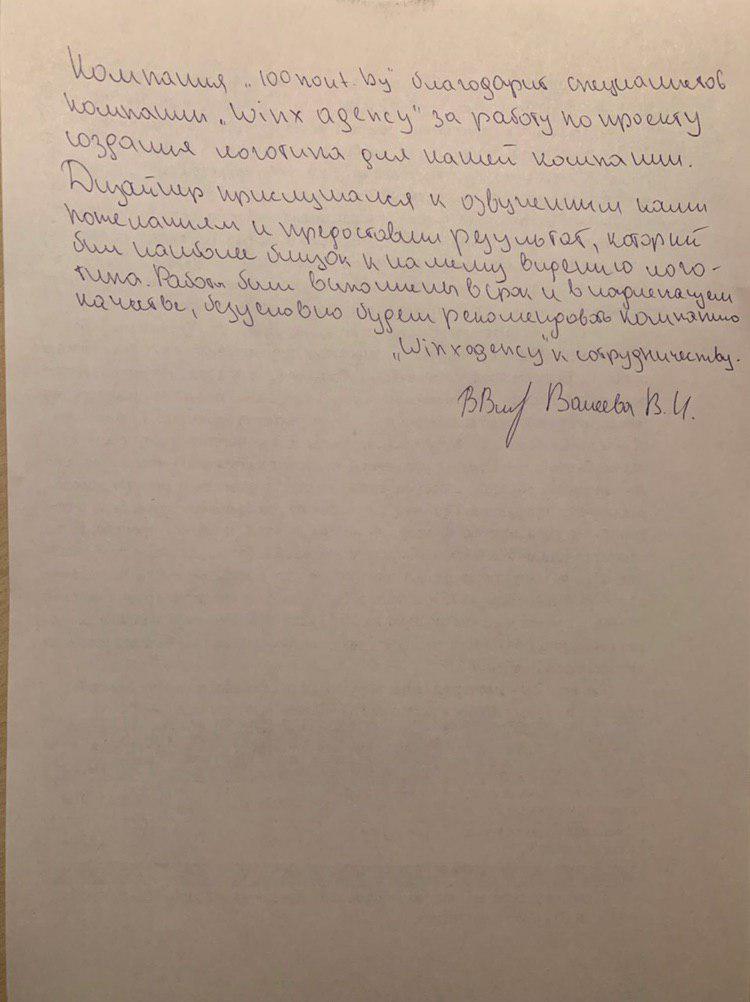 Компания „100nout.by" благодарит специалистов
компании „Winx agency" за работу по проекту
создания логотипа для нашей компании.
Дизайнер прислушался к озвученным нами
пожеланиям и предоставил результат, который
был наиболее близок к нашему видению лого-
типа. Работы были выполнены в срок и в надлежащем
качестве, безусловно будем рекомендовать компанию
„Winx agency" к сотрудничеству.
Валеева В.И.